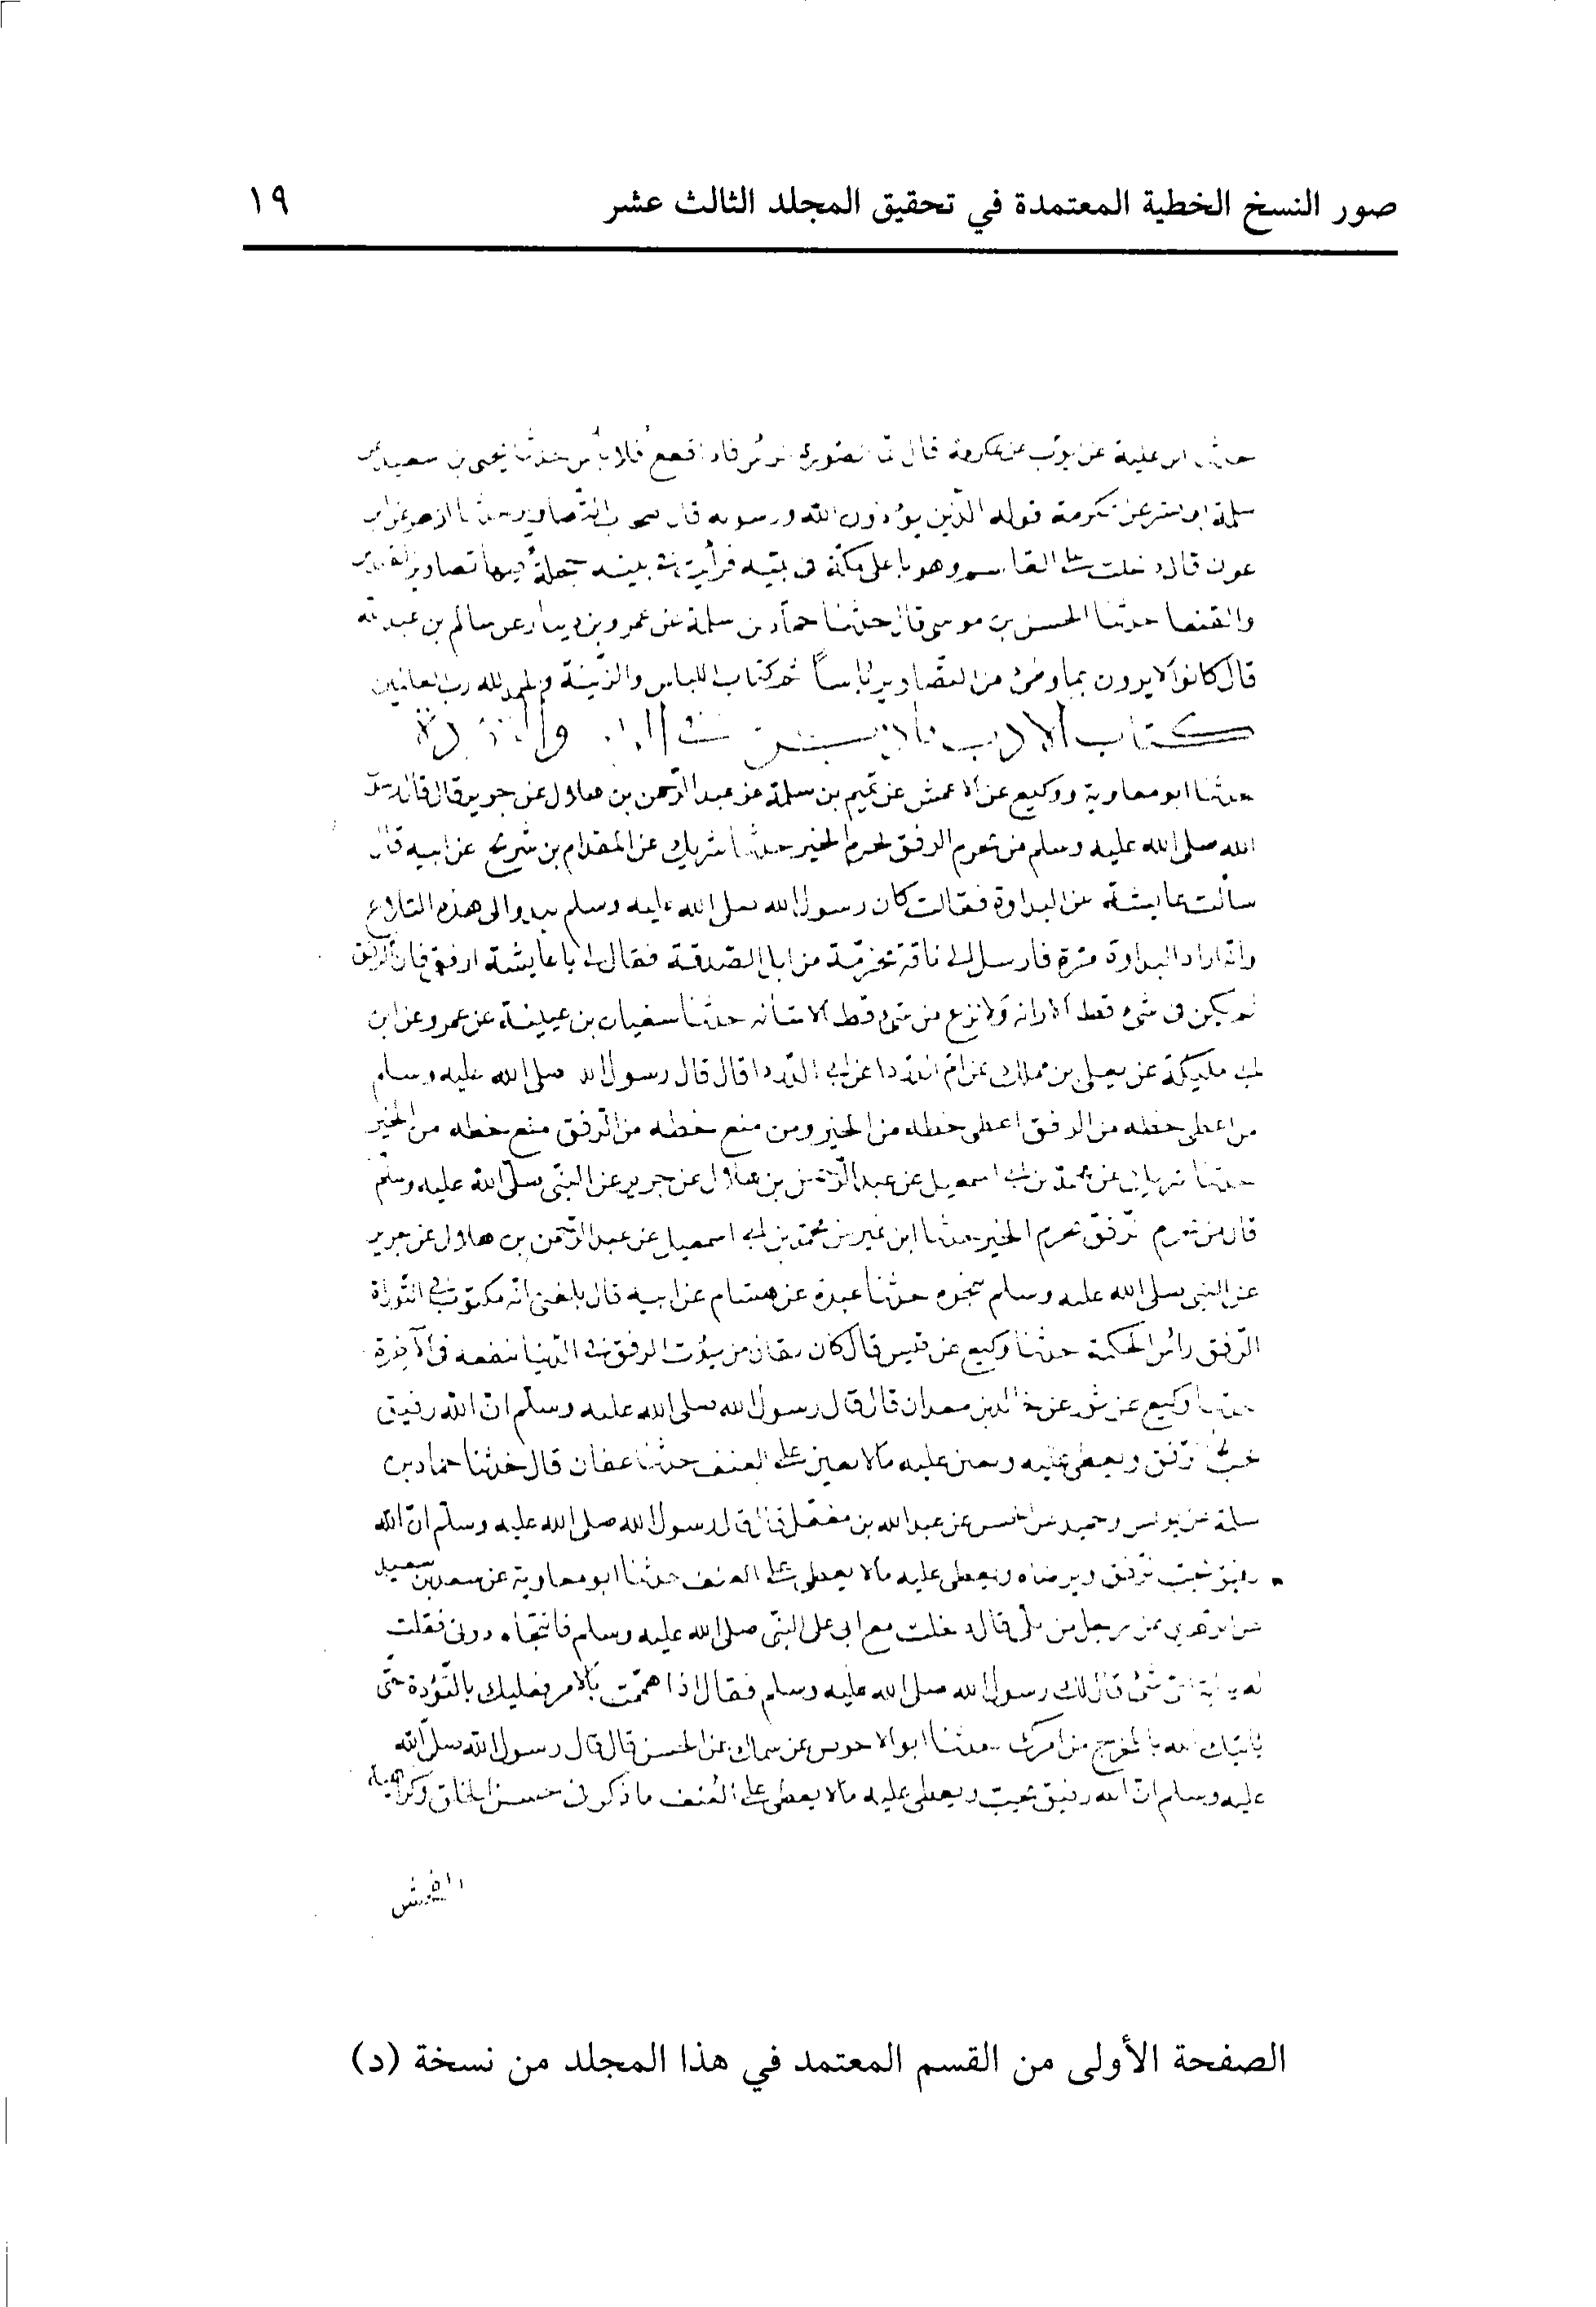 صور النسخ الخطية المعتمدة في تحقيق المجلد الثالث عشر ١٩
ابن علية عن عكرمة قال فلا بأس حدثنا يحيى بن سعيد عن
سلمة عن عكرمة قوله الذين يؤذون الله ورسوله التصاوير حدثنا ازهر عن ابن
عون قال دخلت على القاسم وهو باعلى مكة في بيته فرأيت في بيته حجلة فيها تصاوير
حدثنا الحسن بن موسى قال حدثنا حماد بن سلمة عن عمرو بن دينار عن سالم بن عبد الله
قال كانوا لا يرون بما وطئ من التصاوير بأسا كتاب اللباس والزينة والحمد لله رب العالمين
كتاب الادب
حدثنا ابو معاوية ووكيع عن الاعمش عن تميم بن سلمة عن عبد الرحمن بن هلال عن جرير قال قال رسول
الله صلى الله عليه وسلم من يحرم الرفق يحرم الخير حدثنا شريك عن المقدام بن شريح عن ابيه قال
سألت عايشة عن البداوة فقالت كان رسول الله صلى الله عليه وسلم يبدو الى هذه التلاع
وانه اراد البداوة مرة فارسل الي ناقة محرمة من ابل الصدقة فقال لي يا عايشة ارفقي فان الرفق
لم يكن في شيء قط الا زانه ولا نزع من شيء قط الا شانه حدثنا سفيان بن عيينة عن عمرو عن ابن
ابي مليكة عن يعلى بن مملك عن ام الدردا عن ابي الدردا قال قال رسول الله صلى الله عليه وسلم
من اعطى حظه من الرفق اعطى حظه من الخير ومن منع حظه من الرفق منع حظه من الخير
حدثنا شريك عن محمد بن ابي اسمعيل عن عبد الرحمن بن هلال عن جرير عن النبي صلى الله عليه وسلم
قال من يحرم الرفق يحرم الخير حدثنا ابن نمير عن محمد بن ابي اسمعيل عن عبد الرحمن بن هلال عن جرير
عن النبي صلى الله عليه وسلم بنحوه حدثنا عبدة عن هشام عن ابيه قال بلغني انه مكتوب في التوراة
الرفق رأس الحكمة حدثنا وكيع عن قيس قال كان يقال من يؤت الرفق في الدنيا نفعه في الآخرة
حدثنا وكيع عن ثور عن خالد بن معدان قال قال رسول الله صلى الله عليه وسلم ان الله رفيق
يحب الرفق ويعطي عليه ويعين عليه ما لا يعين على العنف حدثنا عفان قال حدثنا حماد بن
سلمة عن يونس وحميد عن الحسن عن عبد الله بن مغفل قال قال رسول الله صلى الله عليه وسلم ان الله
رفيق يحب الرفق ويرضاه ويعطي عليه ما لا يعطي على العنف حدثنا ابو معاوية عن سعد بن سعيد
عن الزهري عن رجل من بلي قال دخلت مع ابي على النبي صلى الله عليه وسلم فانتجاه دوني فقلت
شئ قال لك رسول الله صلى الله عليه وسلم فقال اذا هممت بالامر فعليك بالتؤدة حتى
يأتيك الله بالمخرج من امرك حدثنا ابو الاحوص عن سماك عن الحسن قال قال رسول الله صلى الله
عليه وسلم ان الله رفيق يحب ويعطي عليه ما لا يعطي على العنف ما ذكر في حسن الخلق وكراهية
الفحش
الصفحة الأولى من القسم المعتمد في هذا المجلد من نسخة (د)